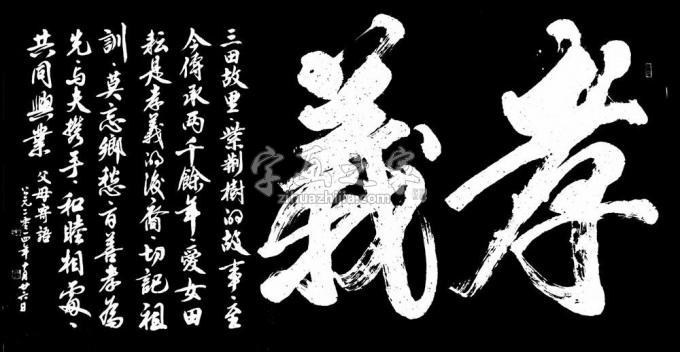 孝義
三田故里、紫荆樹的故事、至
今傳承两千餘年、愛女田
耘是孝義的後裔、切記祖
訓、莫忘鄉愁、百善孝為
先、与夫携手、和睦相處、
共同興業 父母寄語
公元二零一四年月廿六日
字画之家
zihuazhijia.com